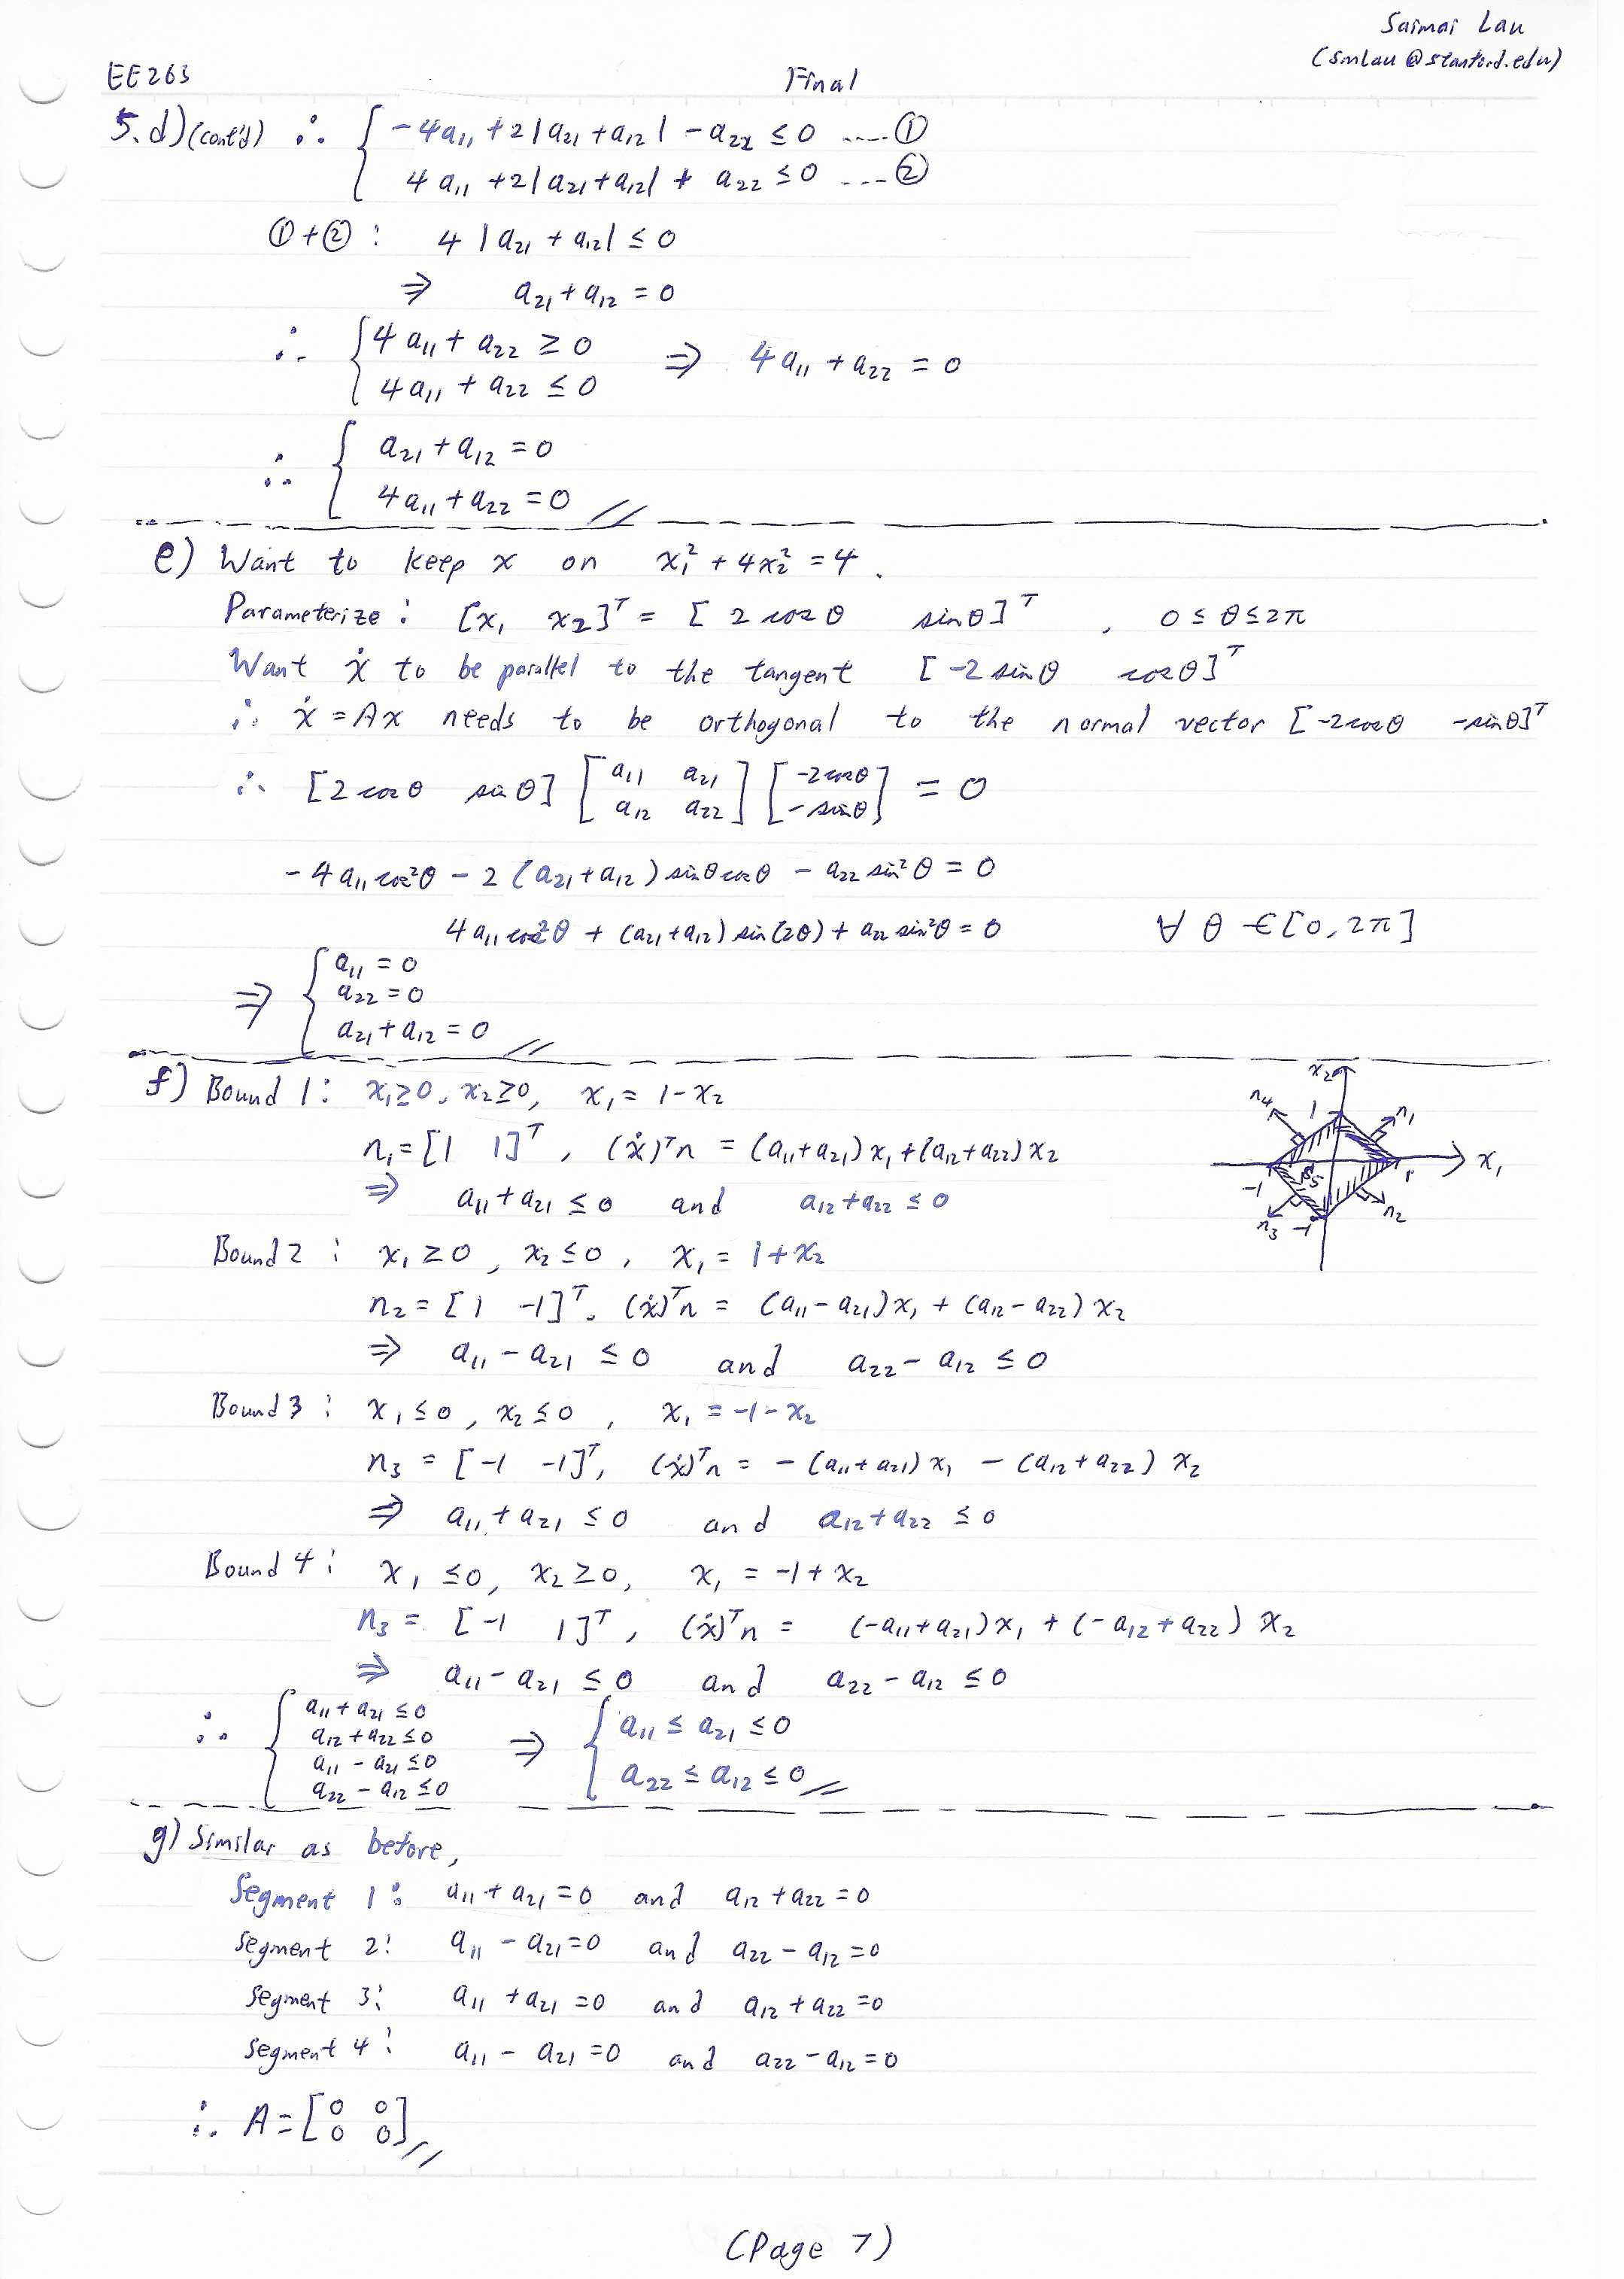 Saimai Lau
(smlau@stanford.edu)
EE263 Final
5.d) (cont'd) ∴ { -4a₁₁ + 2|a₂₁ + a₁₂| - a₂₂ ≤ 0 ..... ①
4a₁₁ + 2|a₂₁ + a₁₂| + a₂₂ ≤ 0 .... ②
①+②: 4|a₂₁ + a₁₂| ≤ 0
⇒ a₂₁ + a₁₂ = 0
∴ { 4a₁₁ + a₂₂ ≥ 0
4a₁₁ + a₂₂ ≤ 0 ⇒ 4a₁₁ + a₂₂ = 0
∴ { a₂₁ + a₁₂ = 0
4a₁₁ + a₂₂ = 0 //
e) Want to keep x on x₁² + 4x₂² = 4.
Parameterize: [x₁ x₂]ᵀ = [2cosθ sinθ]ᵀ, 0 ≤ θ ≤ 2π
Want ẋ to be parallel to the tangent [-2sinθ cosθ]ᵀ
∴ ẋ = Ax needs to be orthogonal to the normal vector [-2cosθ -sinθ]ᵀ
∴ [2cosθ sinθ] [a₁₁ a₂₁; a₁₂ a₂₂] [-2cosθ; -sinθ] = 0
-4a₁₁cos²θ - 2(a₂₁ + a₁₂)sinθcosθ - a₂₂sin²θ = 0
4a₁₁cos²θ + (a₂₁ + a₁₂)sin(2θ) + a₂₂sin²θ = 0 ∀ θ ∈ [0, 2π]
⇒ { a₁₁ = 0
a₂₂ = 0
a₂₁ + a₁₂ = 0 //
f) Bound 1: x₁ ≥ 0, x₂ ≥ 0, x₁ = 1 - x₂
n₁ = [1 1]ᵀ, (ẋ)ᵀn = (a₁₁ + a₂₁)x₁ + (a₁₂ + a₂₂)x₂
⇒ a₁₁ + a₂₁ ≤ 0 and a₁₂ + a₂₂ ≤ 0
x₂
n₄ 1 n₁
-1 P₅ 1 x₁
n₃ -1 n₂
Bound 2: x₁ ≥ 0, x₂ ≤ 0, x₁ = 1 + x₂
n₂ = [1 -1]ᵀ, (ẋ)ᵀn = (a₁₁ - a₂₁)x₁ + (a₁₂ - a₂₂)x₂
⇒ a₁₁ - a₂₁ ≤ 0 and a₂₂ - a₁₂ ≤ 0
Bound 3: x₁ ≤ 0, x₂ ≤ 0, x₁ = -1 - x₂
n₃ = [-1 -1]ᵀ, (ẋ)ᵀn = -(a₁₁ + a₂₁)x₁ - (a₁₂ + a₂₂)x₂
⇒ a₁₁ + a₂₁ ≤ 0 and a₁₂ + a₂₂ ≤ 0
Bound 4: x₁ ≤ 0, x₂ ≥ 0, x₁ = -1 + x₂
n₃ = [-1 1]ᵀ, (ẋ)ᵀn = (-a₁₁ + a₂₁)x₁ + (-a₁₂ + a₂₂)x₂
⇒ a₁₁ - a₂₁ ≤ 0 and a₂₂ - a₁₂ ≤ 0
∴ { a₁₁ + a₂₁ ≤ 0
a₁₂ + a₂₂ ≤ 0 ⇒ { a₁₁ ≤ a₂₁ ≤ 0
a₁₁ - a₂₁ ≤ 0
a₂₂ - a₁₂ ≤ 0 a₂₂ ≤ a₁₂ ≤ 0 //
g) Similar as before,
Segment 1: a₁₁ + a₂₁ = 0 and a₁₂ + a₂₂ = 0
Segment 2: a₁₁ - a₂₁ = 0 and a₂₂ - a₁₂ = 0
Segment 3: a₁₁ + a₂₁ = 0 and a₁₂ + a₂₂ = 0
Segment 4: a₁₁ - a₂₁ = 0 and a₂₂ - a₁₂ = 0
∴ A = [0 0; 0 0] //
(Page 7)